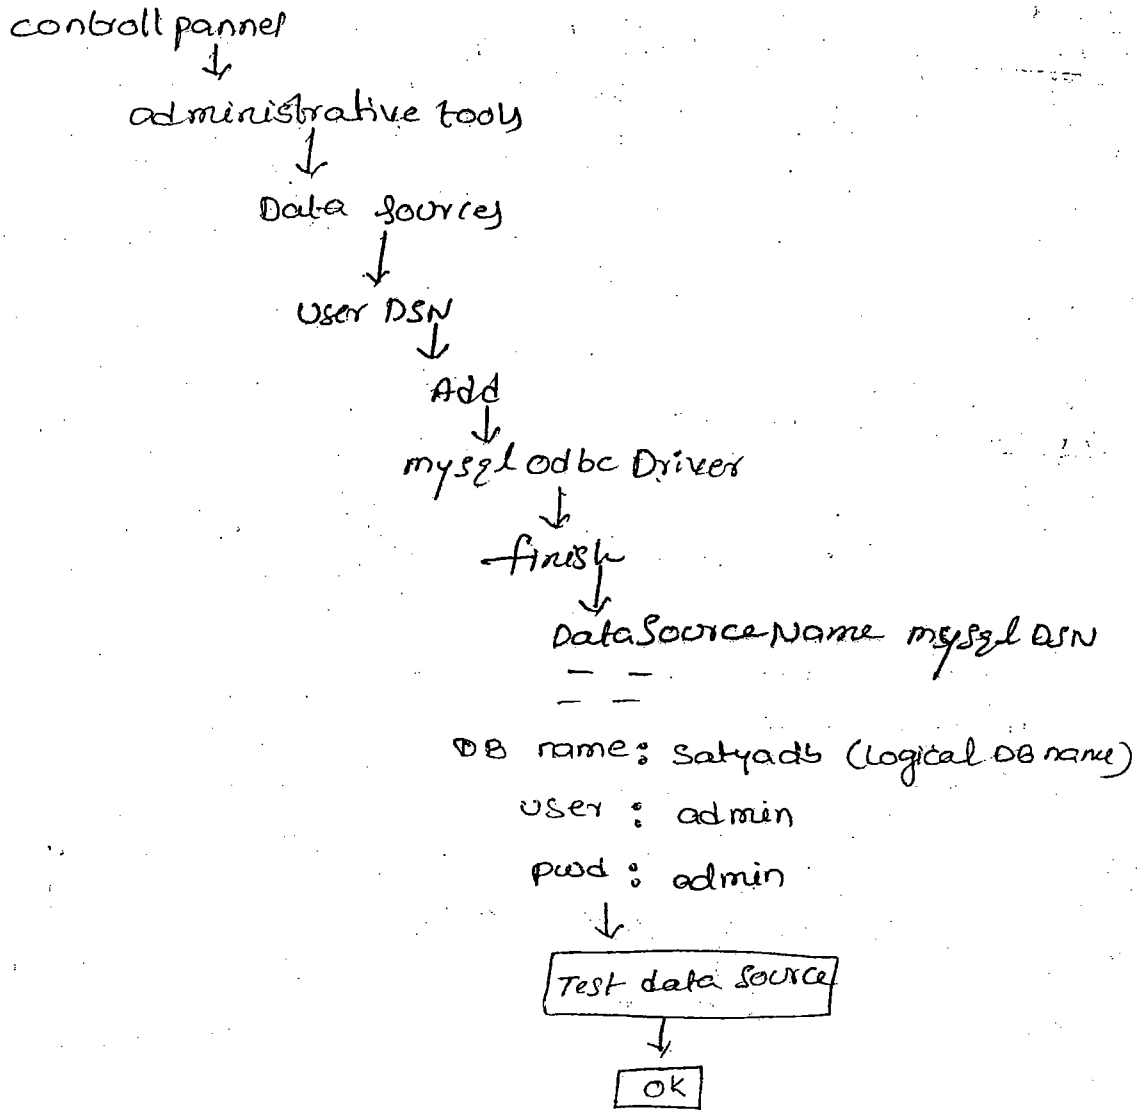 controll pannel
administrative tools
Data Sources
User DSN
Add
mysql odbc Driver
finish
DataSourceName mysql DSN
DB name: satyadb (Logical DB name)
user : admin
pwd : admin
Test data source
OK